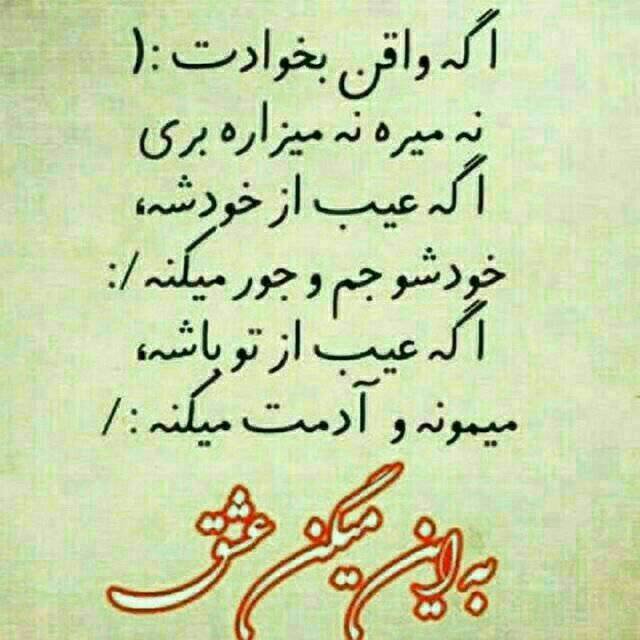 اگه واقن بخوادت :(
نه میره نه میزاره بری
اگه عیب از خودشه،
خودشو جم و جور میکنه /:
اگه عیب از تو باشه،
میمونه و آدمت میکنه : /
به این میگن عشق